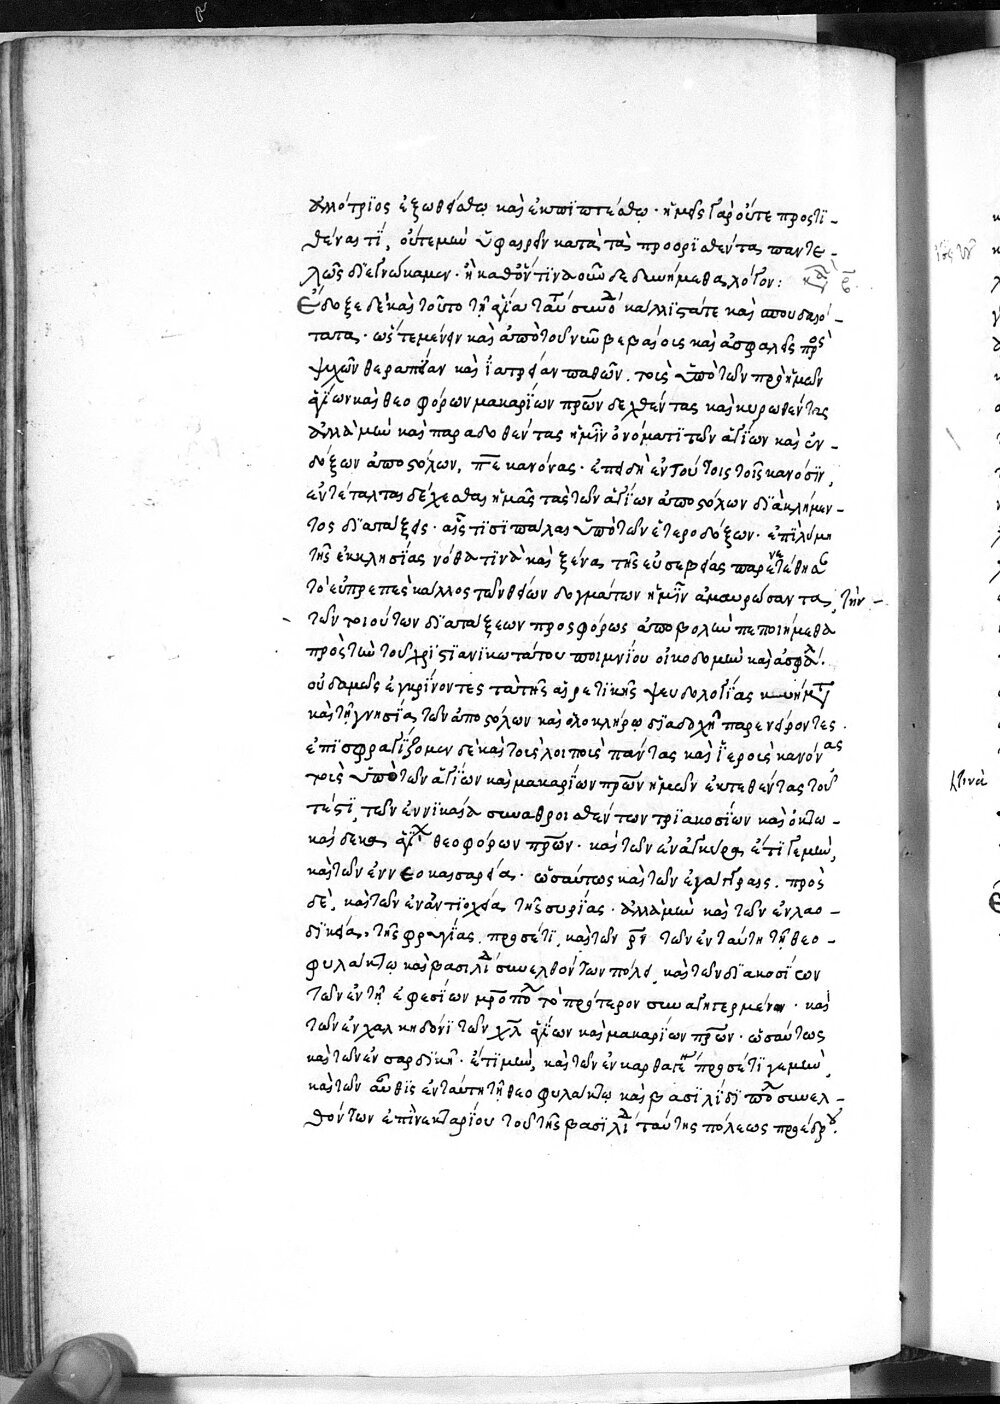 ἀλλότριος ἐξωθείσθω καὶ ἐκπιπτέσθω· ἡμεῖς γὰρ οὔτε προστι-
θέναι τί, οὔτε μὴν ὑφαιρεῖν κατὰ τὰ προορισθέντα παντε-
λῶς διεγνώκαμεν· ἢ καθ' ὅντινα οὖν δεδυνήμεθα λόγον:
Ἔδοξε δὲ καὶ τοῦτο τῆ ἁγία ταύ συνό κάλλιστά τε καὶ σπουδαιό-
τατα· ὥστε μένειν καὶ ἀπὸ τοῦ νῦν βεβαίους καὶ ἀσφαλεῖς πρὸς
ψυχῶν θεραπείαν καὶ ἰατρείαν παθῶν. τοὺς ὑπὸ τῶν πρὸ ἡμῶν
ἁγίων καὶ θεοφόρων μακαρίων πρῶν δεχθέντας καὶ κυρωθέντας
ἀλλὰ μὴν καὶ παραδοθέντας ἡμῖν ὀνόματι τῶν ἁγίων καὶ ἐν-
δόξων ἀποστόλων, πε κανόνας· ἐπειδὴ ἐν τούτοις τοῖς κανόσιν,
ἐντέταλται δέχεσθαι ἡμᾶς τὰς τῶν ἁγίων ἀποστόλων διὰ κλήμεν-
τος διατάξεις· αἷς τισι πάλαι ὑπὸ τῶν ἑτεροδόξων· ἐπὶ λύμη
τῆς ἐκκλησίας νόθα τινὰ καὶ ξένα τῆς εὐσεβείας παρενετέθησαν
τὸ εὐπρεπὲς κάλλος τῶν θείων δογμάτων ἡμῖν ἀμαυρώσαντα, τὴν
τῶν τοιούτων διατάξεων προσφόρως ἀποβολὴν πεποιήμεθα
πρὸς τὴν τοῦ χριστιανικωτάτου ποιμνίου οἰκοδομὴν καὶ ἀσφά.
οὐδαμῶς ἐγκρίνοντες τὰ τῆς αἱρετικῆς ψευδολογίας κυήματα
καὶ τῆ γνησία τῶν ἀποστόλων καὶ ὁλοκλήρω διδαχῆ παρενείροντες.
ἐπισφραγίζομεν δὲ καὶ τοὺς λοιποὺς πάντας καὶ ἱεροὺς κανόνας
τοὺς ὑπὸ τῶν ἁγίων καὶ μακαρίων πρῶν ἡμῶν ἐκτεθέντας τοῦ
τέστι, τῶν ἐν νικαία συναθροισθέντων τριακοσίων καὶ ὀκτω-
καίδεκα ἁγί θεοφόρων πρῶν· καὶ τῶν ἐν ἀγκύρα, ἔτι γε μὴν,
καὶ τῶν ἐν νεοκαισαρεία· ὡσαύτως καὶ τῶν ἐν γάγγραις. πρὸς
δὲ, καὶ τῶν ἐν ἀντιοχεία τῆς συρίας· ἀλλὰ μὴν καὶ τῶν ἐν λαο-
δικεία, τῆς φρυγίας. προσέτι, καὶ τῶν ρν τῶν ἐν ταύτη τῆ θεο-
φυλάκτω καὶ βασιλί συνελθόντων πόλει, καὶ τῶν διακοσίων
τῶν ἐν τῆ ἐφεσίων μροπό τὸ πρότερον συναγηγερμένων· καὶ
τῶν ἐν χαλκηδόνι τῶν χλ ἁγίων καὶ μακαρίων πρῶν· ὡσαύτως
καὶ τῶν ἐν σαρδικῆ· ἔτι μὴν, καὶ τῶν ἐν καρθαγέ προσέτι γε μὴν,
καὶ τῶν αὖθις ἐν ταύτη τῆ θεοφυλάκτω καὶ βασιλίδι πό συνελ-
θόντων ἐπὶ νεκταρίου τοῦ τῆς βασιλί ταύτης πόλεως προέδρου.